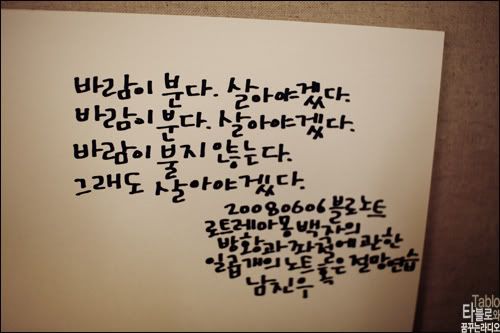 바람이 분다. 살아야겠다.
바람이 분다. 살아야겠다.
바람이 불지 않는다.
그래도 살아야겠다.
20080606 블로노트
로트레아몽 백작의
방황과 좌절에 관한
일곱개의 노트 혹은 절망연습
남진우
Tablo
타블로와
꿈꾸는라디오